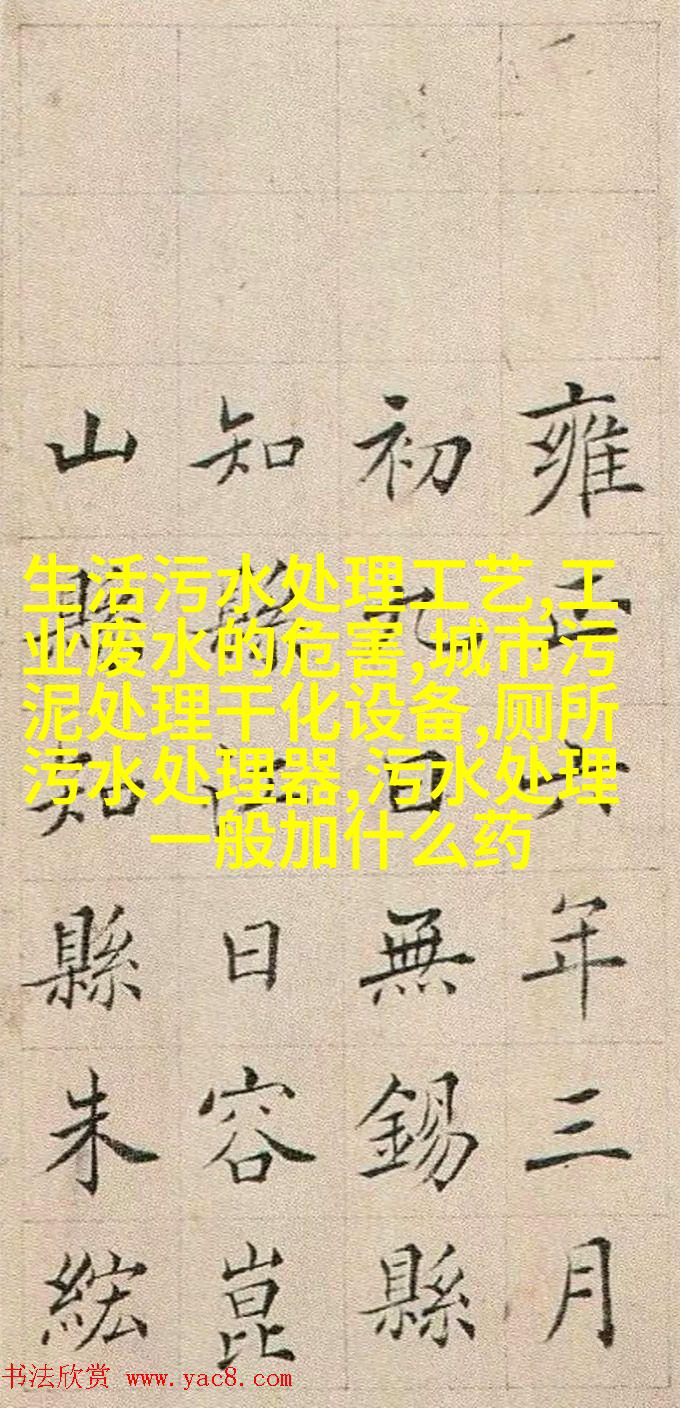 雍正六年三月
初九日無錫縣
知縣江日容崑
山縣知縣朱紘
生活污水处理工艺,工
业废水的危害,城市污
泥处理干化设备,厕所
污水处理器,污水处理
一般加什么药
书法欣赏 www.yac8.com